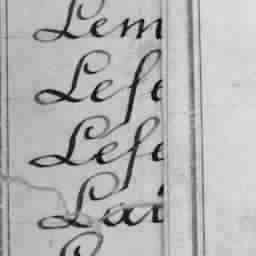 Lem
Lefe
Lefe
Lai